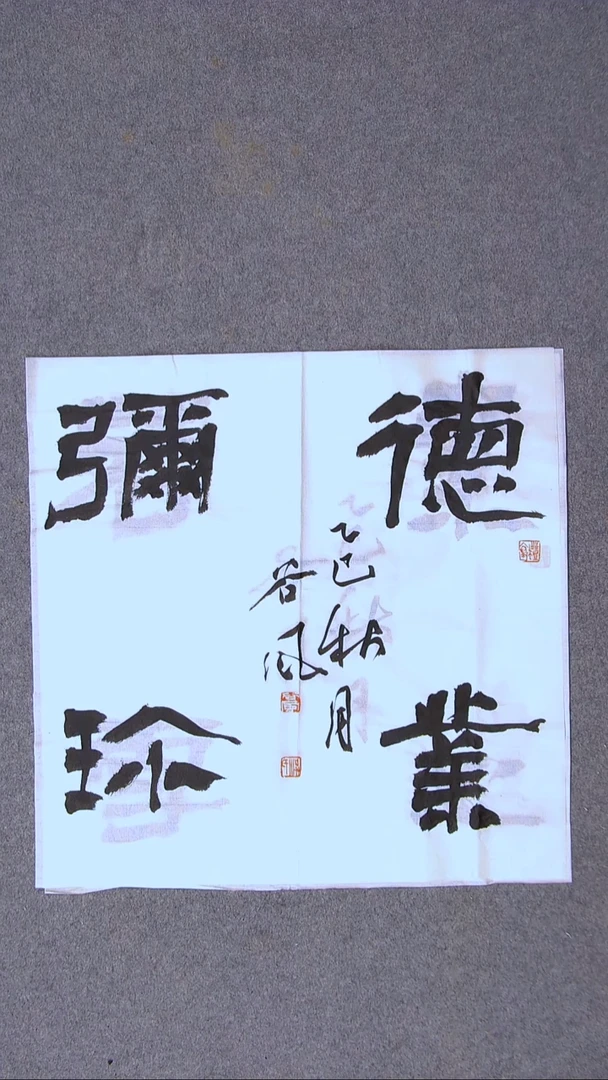 德業
彌珍
乙巳秋月
谷風